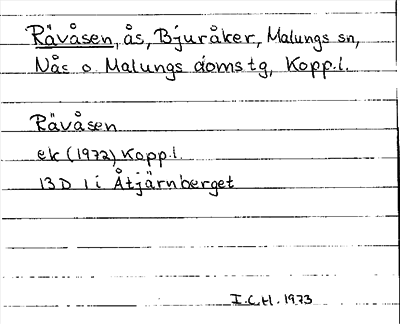 Rävåsen, ås, Bjuråker, Malungs sn,
Nås o. Malungs domstg, Kopp.l.
Rävåsen
ek (1972) Kopp.l.
13D 1i Åtjärnberget
I.C.H. 1973